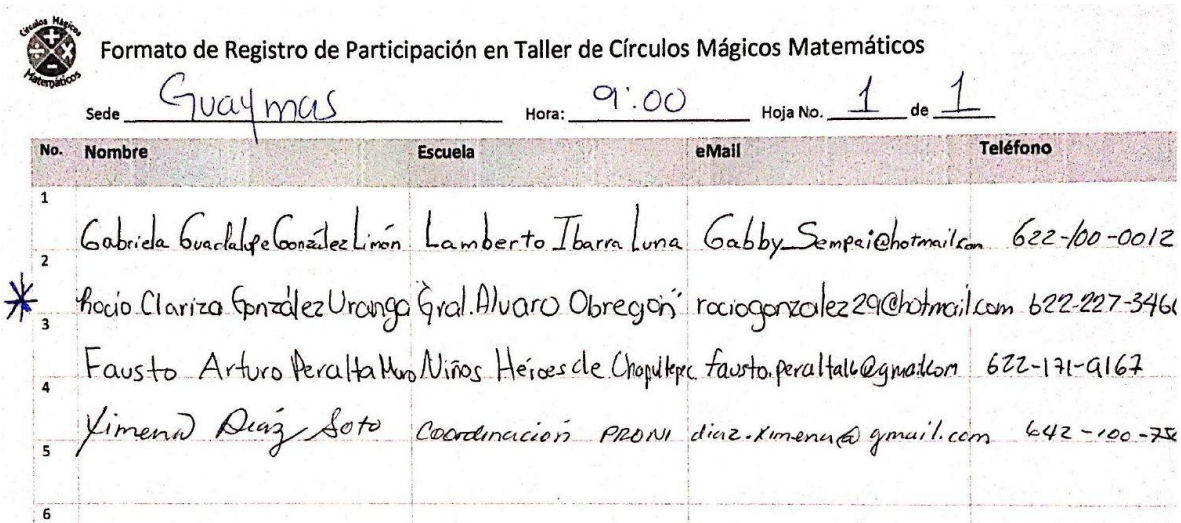 Círculos Mágicos
Matemáticos
Formato de Registro de Participación en Taller de Círculos Mágicos Matemáticos
Sede Guaymas Hora: 9:00 Hoja No. 1 de 1
No. Nombre Escuela eMail Teléfono
1
Gabriela Guadalupe González Limón Lamberto Ibarra Luna Gabby_Sempai@hotmail.com 622-100-0012
2
* Rocio Clariza González Uranga "Gral. Alvaro Obregón" rociogonzalez29@hotmail.com 622-227-346
3
Fausto Arturo Peralta Niños Héroes de Chapultepec 622-171-9167
4
Ximena Diaz Soto Coordinación PRONI diaz.ximena@gmail.com 642-100-75
5
6